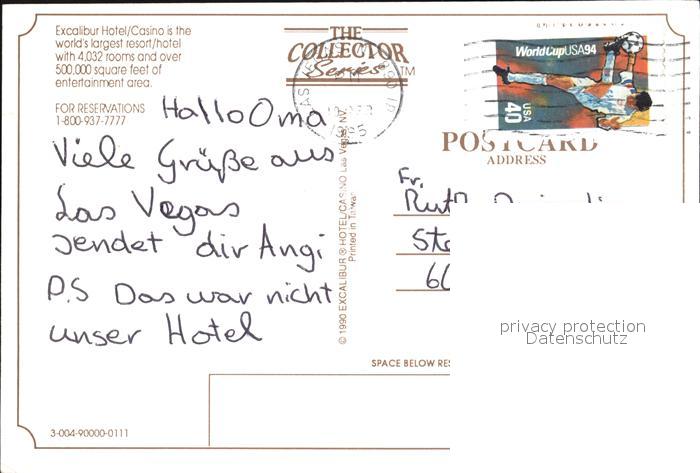 Excalibur Hotel/Casino is the
world's largest resort/hotel
with 4,032 rooms and over
500,000 square feet of
entertainment area.
FOR RESERVATIONS
1-800-937-7777
THE
COLLECTOR
Series TM
WorldCupUSA94
USA
40
POSTCARD
ADDRESS
Hallo Oma
Viele Grüße aus
Las Vegas
sendet dir Angi
P.S Das war nicht
unser Hotel
© 1990 EXCALIBUR ® HOTEL/CASINO Las Vegas, NV.
Printed in Taiwan
Fr.
Ruth
privacy protection
Datenschutz
SPACE BELOW RES
3-004-90000-0111